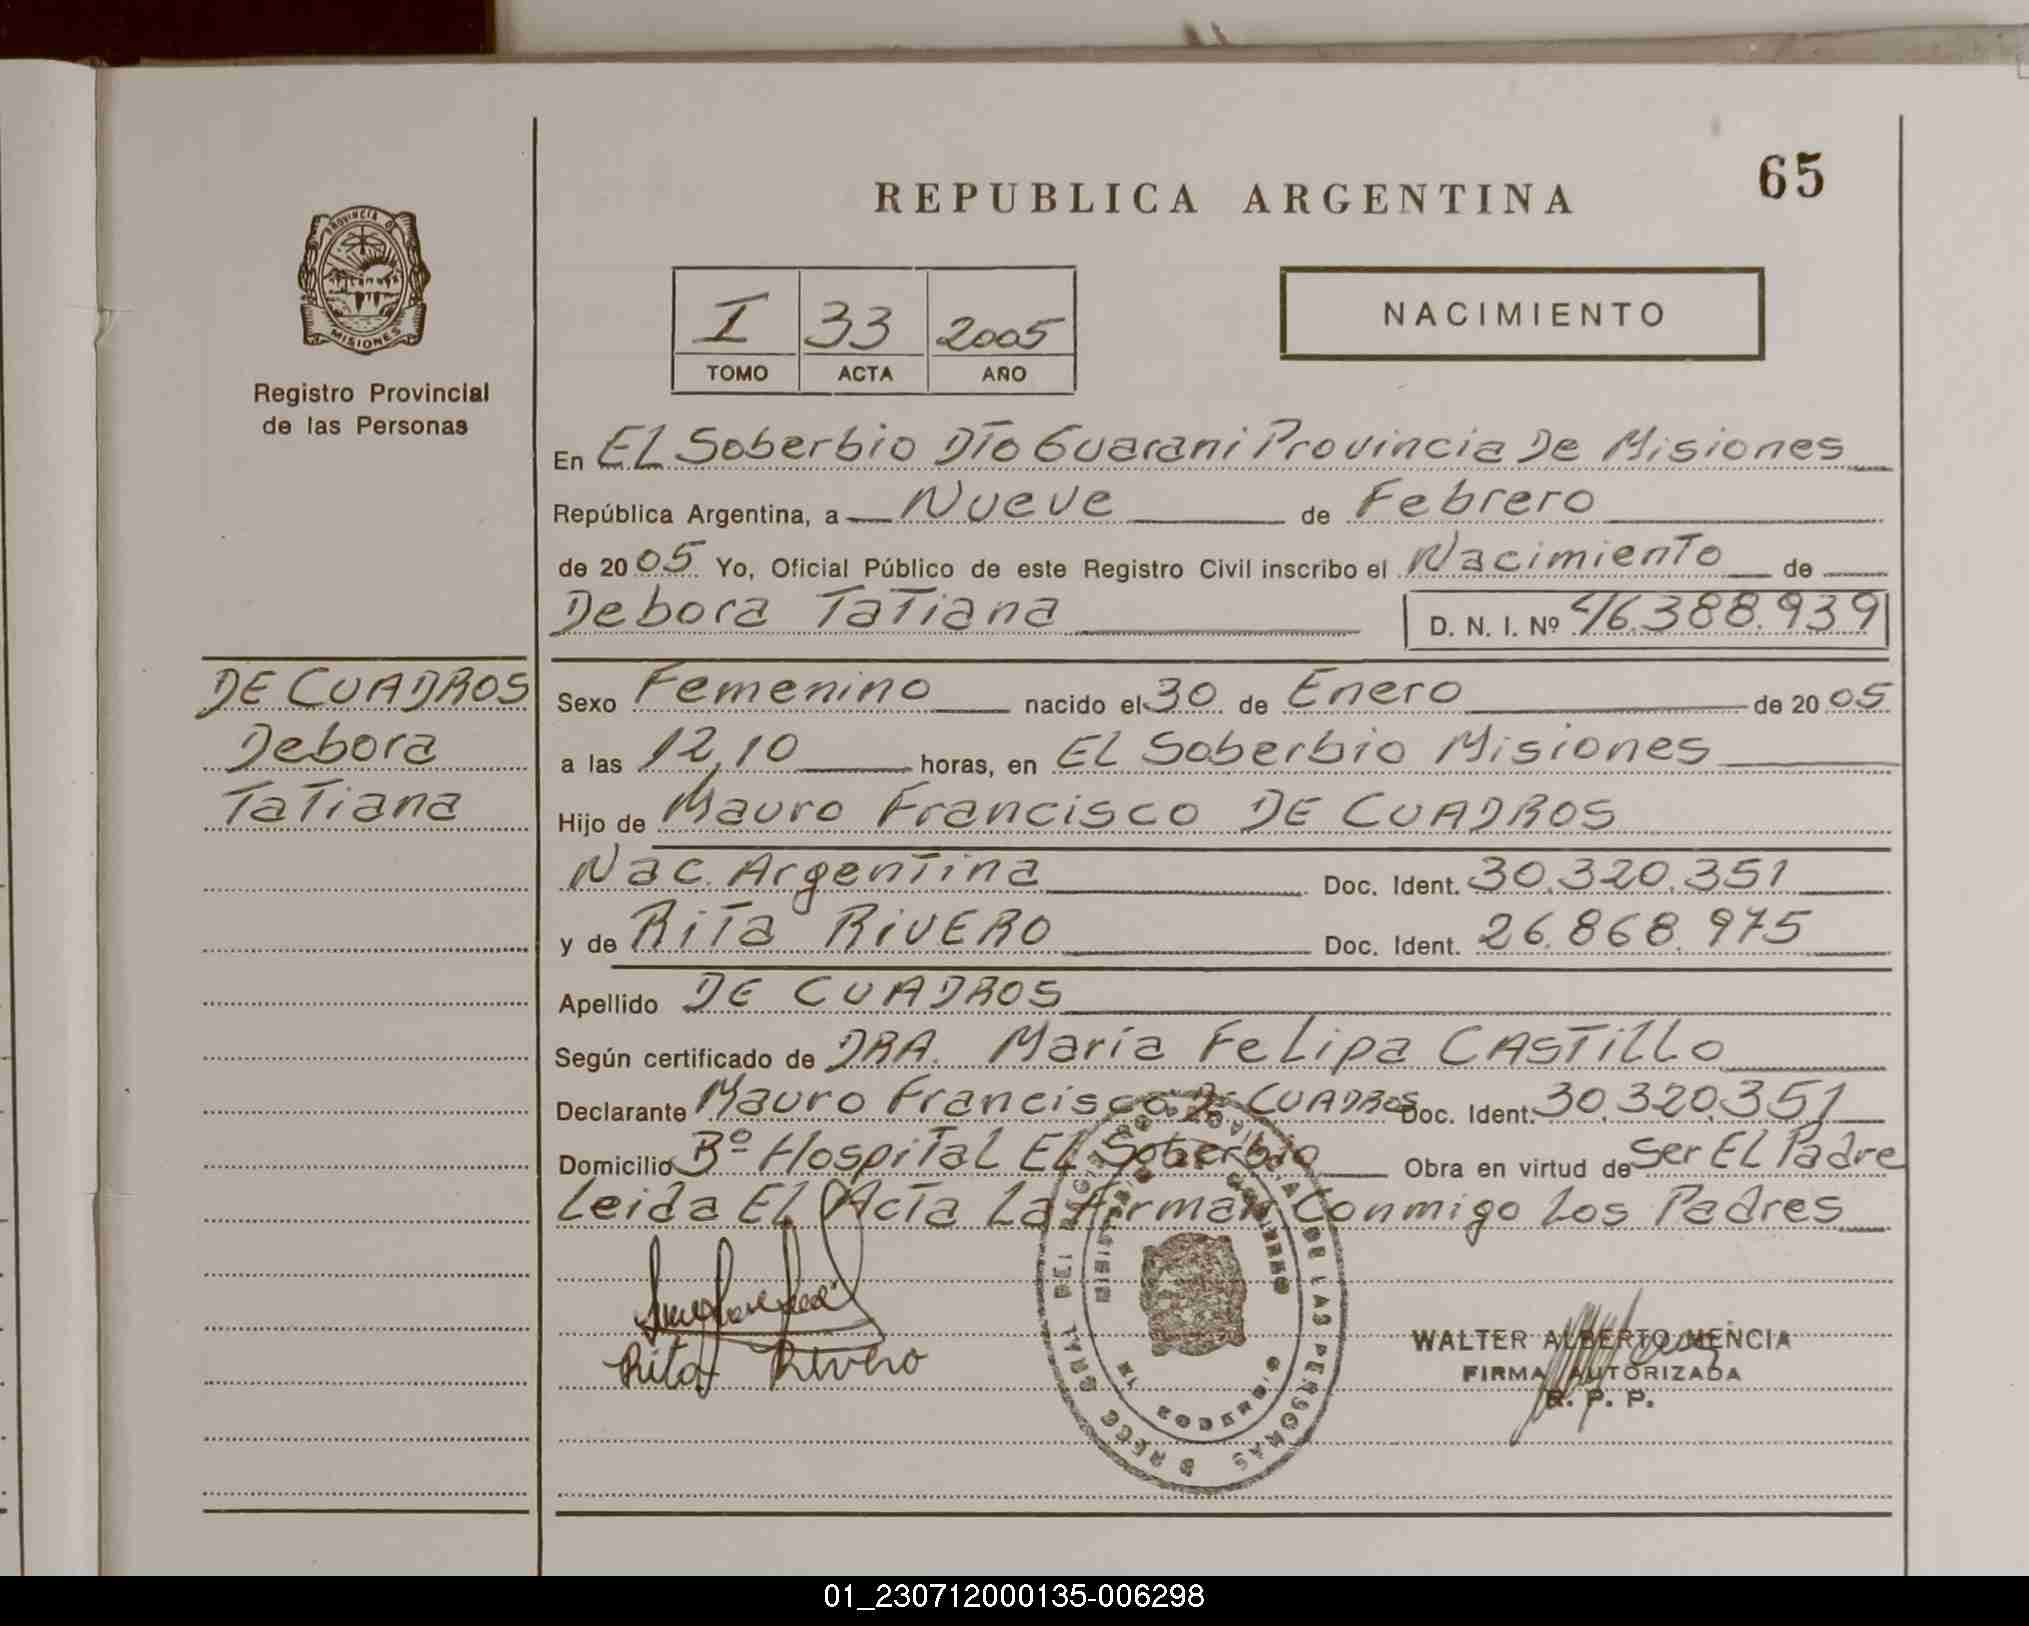 65
REPUBLICA ARGENTINA
PROVINCIA D
MISIONES
Registro Provincial
de las Personas
I 33 2005
TOMO ACTA AÑO
NACIMIENTO
En EL Soberbio DTo Guarani Provincia De Misiones
República Argentina, a Nueve de Febrero
de 2005 Yo, Oficial Público de este Registro Civil inscribo el Nacimiento de
Debora Tatiana D. N. I. Nº 46.388.939
DE CUADROS
Debora
Tatiana
Sexo Femenino nacido el 30 de Enero de 2005
a las 12,10 horas, en EL Soberbio Misiones
Hijo de Mauro Francisco DE CUADROS
Nac. Argentina Doc. Ident. 30.320.351
y de Rita RIVERO Doc. Ident. 26.868.975
Apellido DE CUADROS
Según certificado de DRA. María Felipa CASTILLO
Declarante Mauro Francisco De CUADROS Doc. Ident. 30.320.351
Domicilio Bº Hospital EL Soberbio Obra en virtud de Ser EL Padre
Leida EL Acta La firman Conmigo Los Padres
Rita Rivero
DE LAS PERSONAS
WALTER ALBERTO MENCIA
FIRMA AUTORIZADA
R. P. P.
01_230712000135-006298